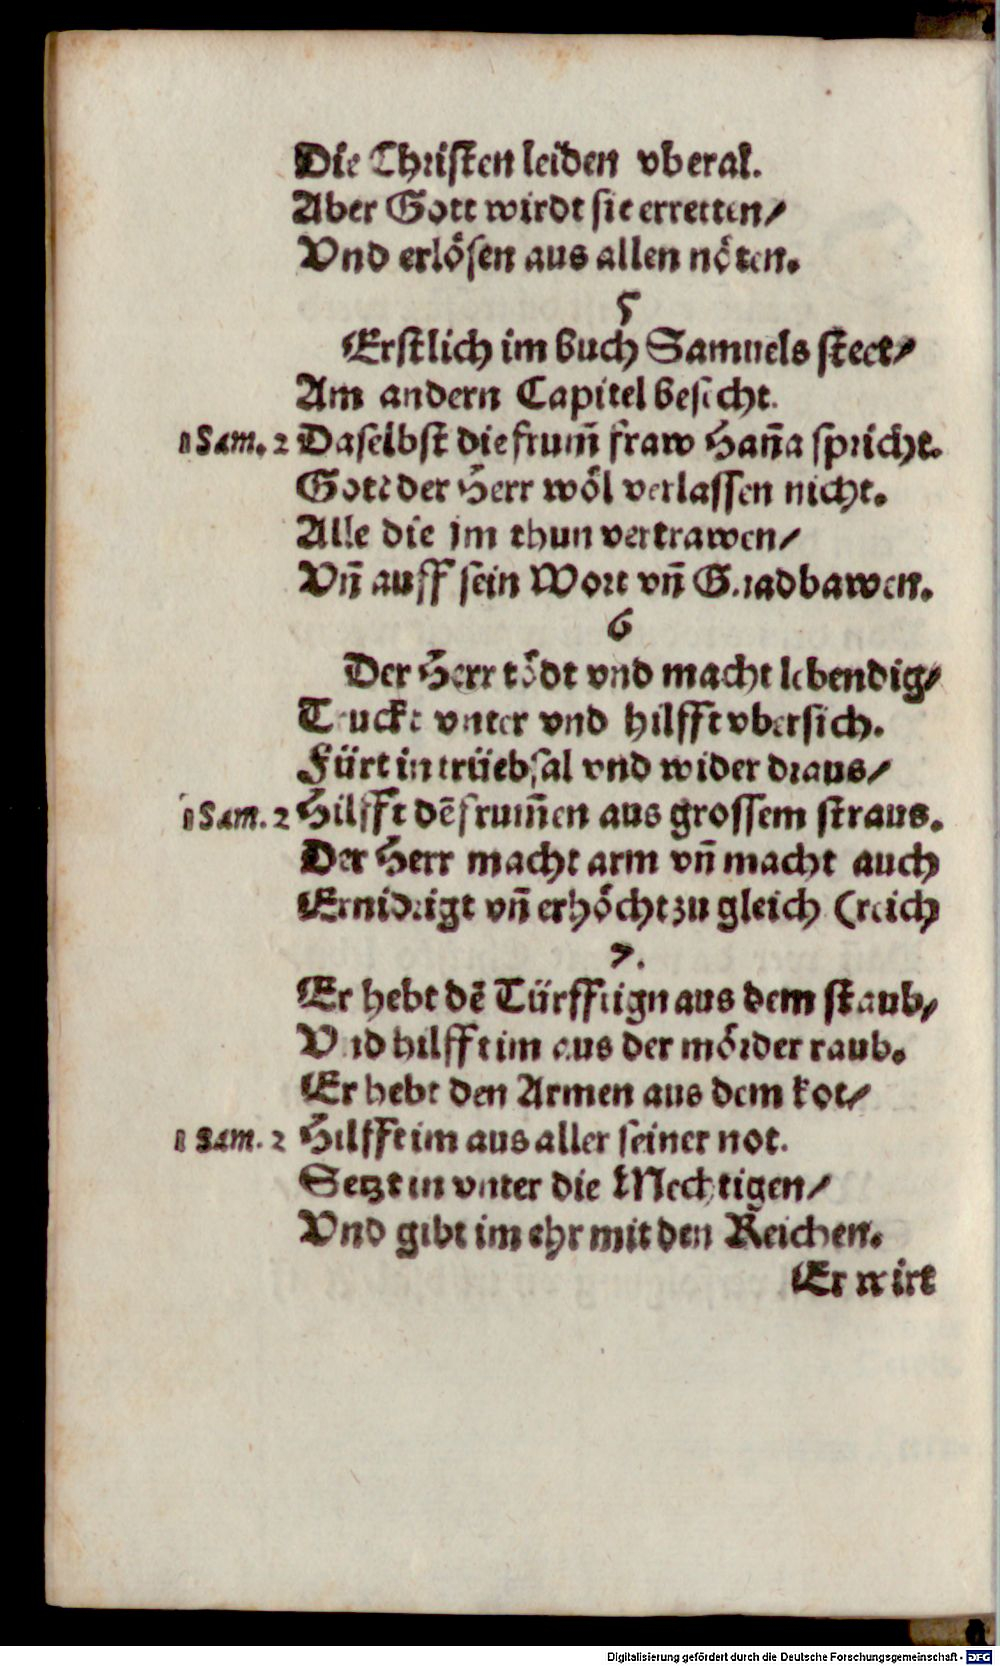 Die Christen leiden vberal.
Aber Gott wirdt sie erretten/
Vnd erlösen aus allen nöten.
5
Erstlich im buch Samuels steet/
Am andern Capitel besicht.
1 Sam. 2 Daselbst die frum̃ fraw Hañа spricht.
Gott der Herr wöl verlassen nicht.
Alle die im thun vertrawen/
Vñ auff sein Wort vñ Gnad bawen.
6
Der Herr tödt vnd macht lebendig/
Truckt vnter vnd hilfft vbersich.
Fürt in trüebsal vnd wider draus/
1 Sam. 2 Hilfft dẽ frum̃en aus grossem straus.
Der Herr macht arm vñ macht auch
Ernidrigt vñ erhöcht zu gleich (reich
7.
Er hebt dẽ Türfftign aus dem staub/
Vnd hilfft im aus der mörder raub.
Er hebt den Armen aus dem kot/
1 Sam. 2 Hilfft im aus aller seiner not.
Setzt in vnter die Mechtigen/
Vnd gibt im ehr mit den Reichen.
Er wirt
Digitalisierung gefördert durch die Deutsche Forschungsgemeinschaft - DFG